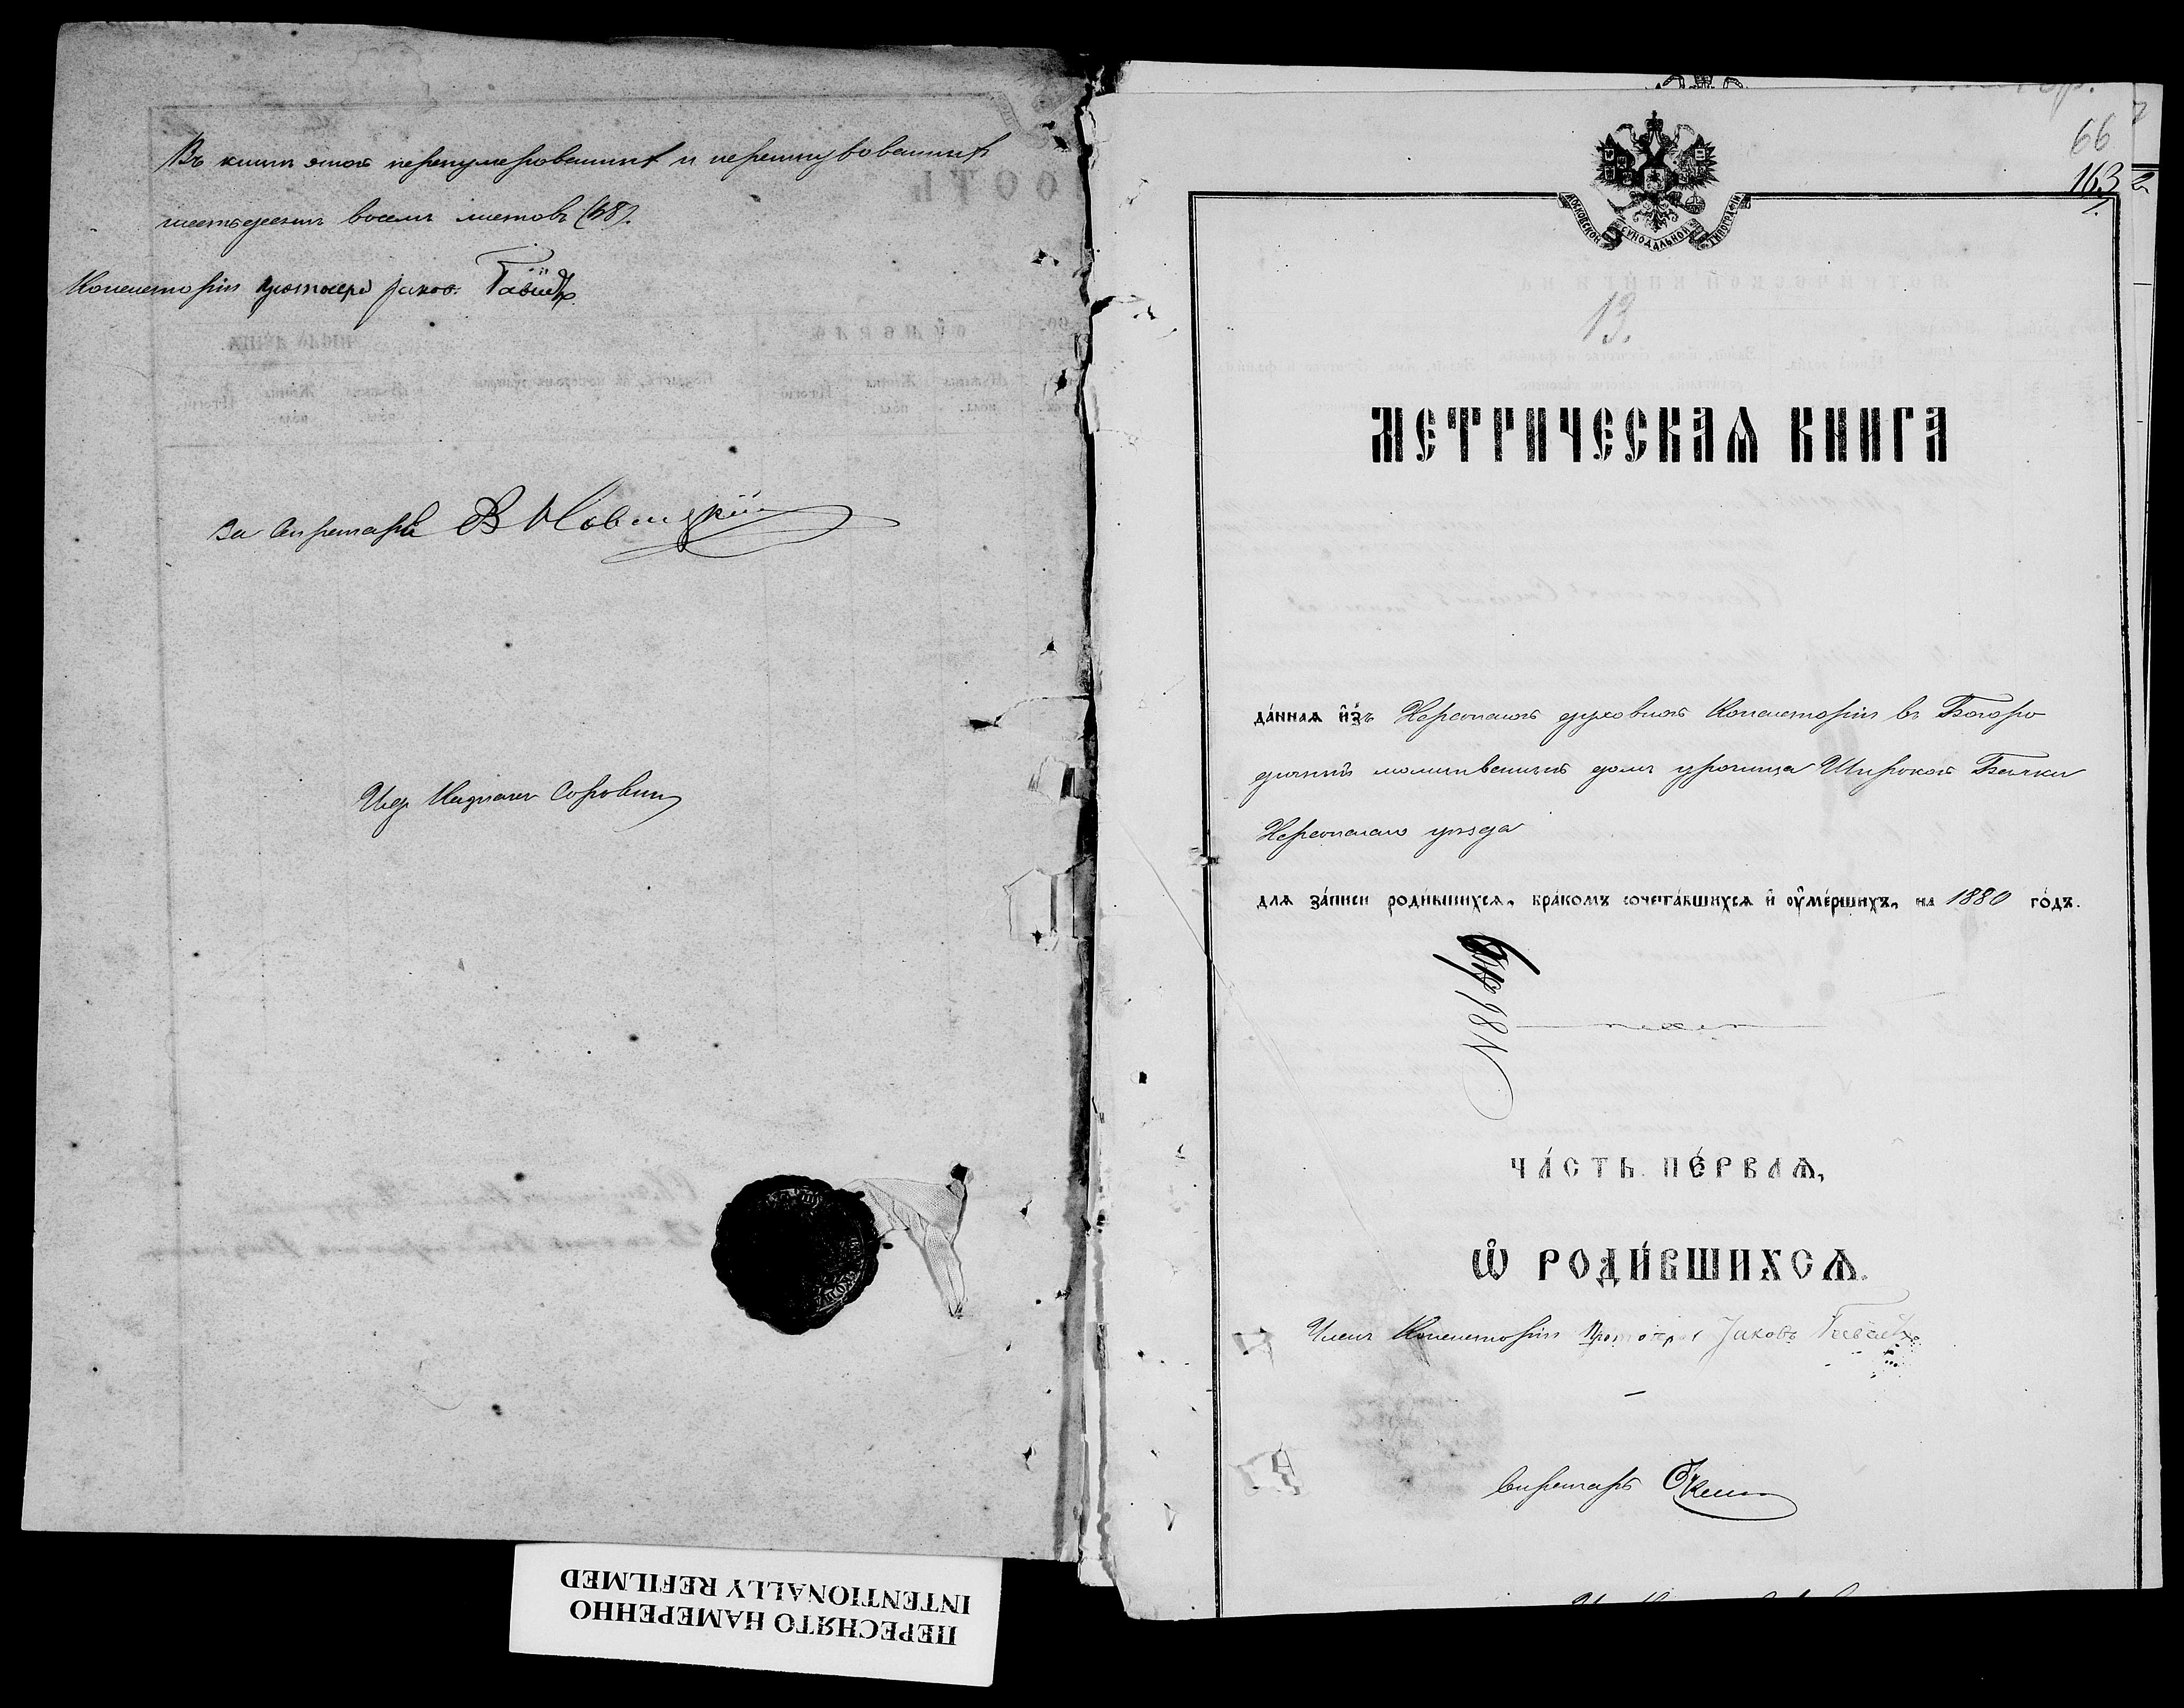 Въ книгѣ этой перенумерованныхъ и перешнурованныхъ
шестьдесятъ восемь листовъ (68).
Консисторіи Протоіерей Іаковъ
За Секретаря В Новицкій
66
163
1.
МОСКОВСКОЙ СѴНОДАЛЬНОЙ ТИПОГРАФІИ
13.
МЕТРИЧЕСКАѦ КНИГА
да́ннаѧ и҆з̾ Херсонской духовной Консисторіи въ Богоро
дичный молитвенный домъ урочища Широкой Балки
Херсонскаго уѣзда
для за́писи роди́вшихсѧ, бра́комъ сочета́вшихсѧ и҆ ᲂу҆ме́ршихъ, на 1880 го́дъ.
ЧА́СТЬ ПЕ́РВАѦ,
Ѡ҆ РОДИ́ВШИХСѦ.
Членъ Консисторіи Протоіерей Іаковъ
Секретарь
ПЕРЕСНЯТО НАМЕРЕННО
INTENTIONALLY REFILMED